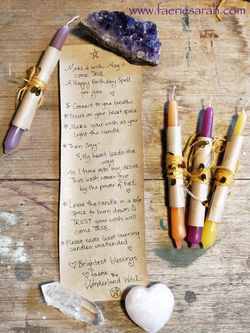 www.faeriesarah.com
Make a wish, May it
come TRUE
A Happy Birthday Spell
for you
* Connect to your breath
* Focus on your heart space
* Make your wish as you
light the candle
* Then Say
My heart leads the
way
As I tune into my desire
This wish comes true
by the power of FIRE.
* Leave the candle in a safe
space to burn down &
TRUST your wish will
come TRUE.
* Please never leave burning
candles unattended
Brightest blessings
Faerie
the
Wonderland Witch